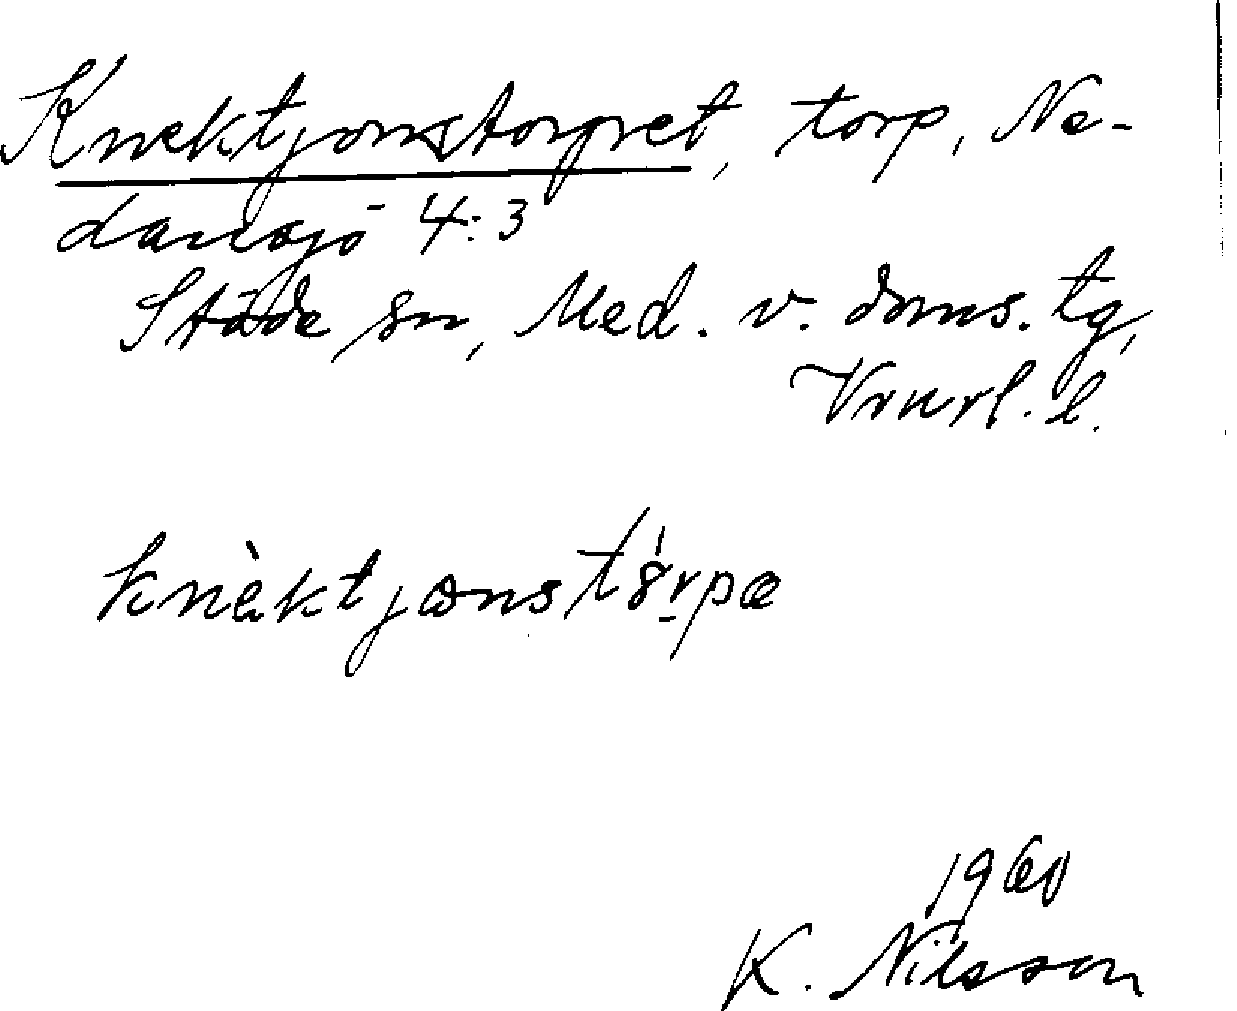 Knektjonstorpet, torp, Ne-
dansjö 4:3
Stöde sn, Med. v. doms. tg,
Vnrl. l.
knèktjonstǿrpa
1960
K. Nilsson